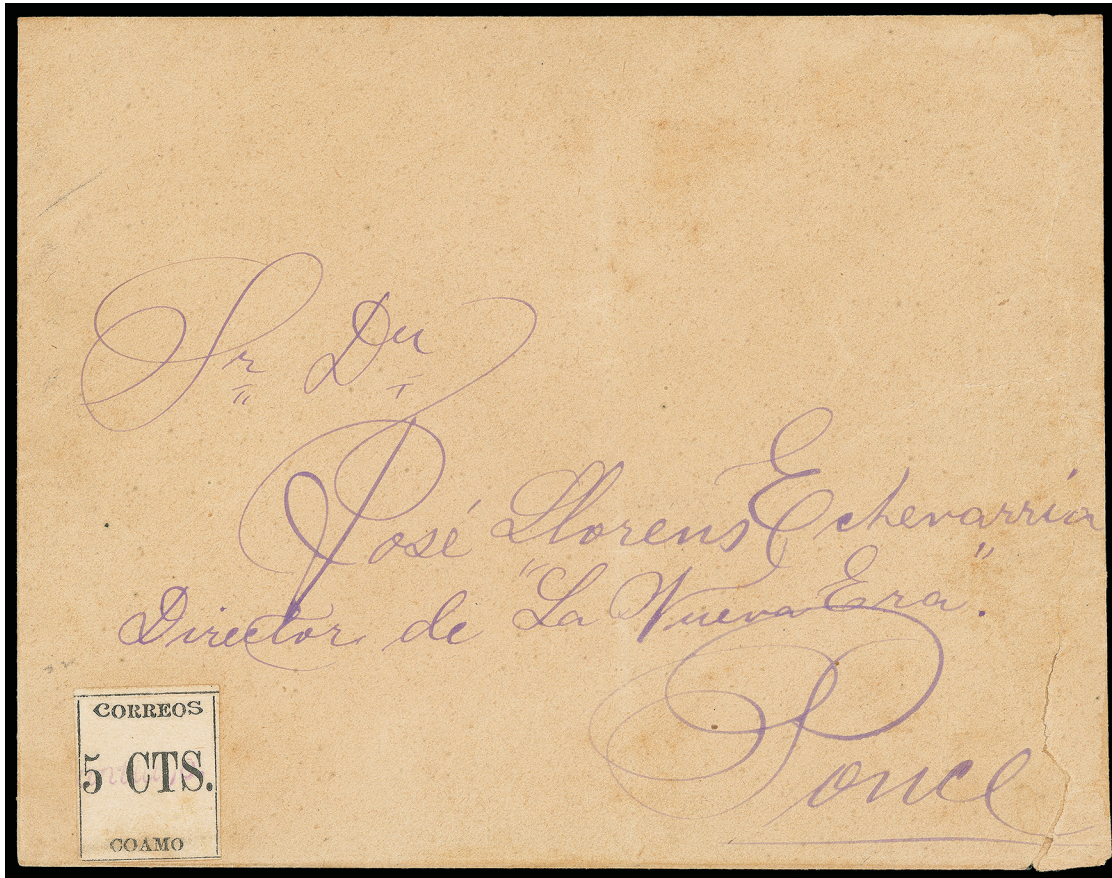 Sr Dn
José Llorens Echevarría
Director de "La Nueva Era".
Ponce
CORREOS
5 CTS.
COAMO